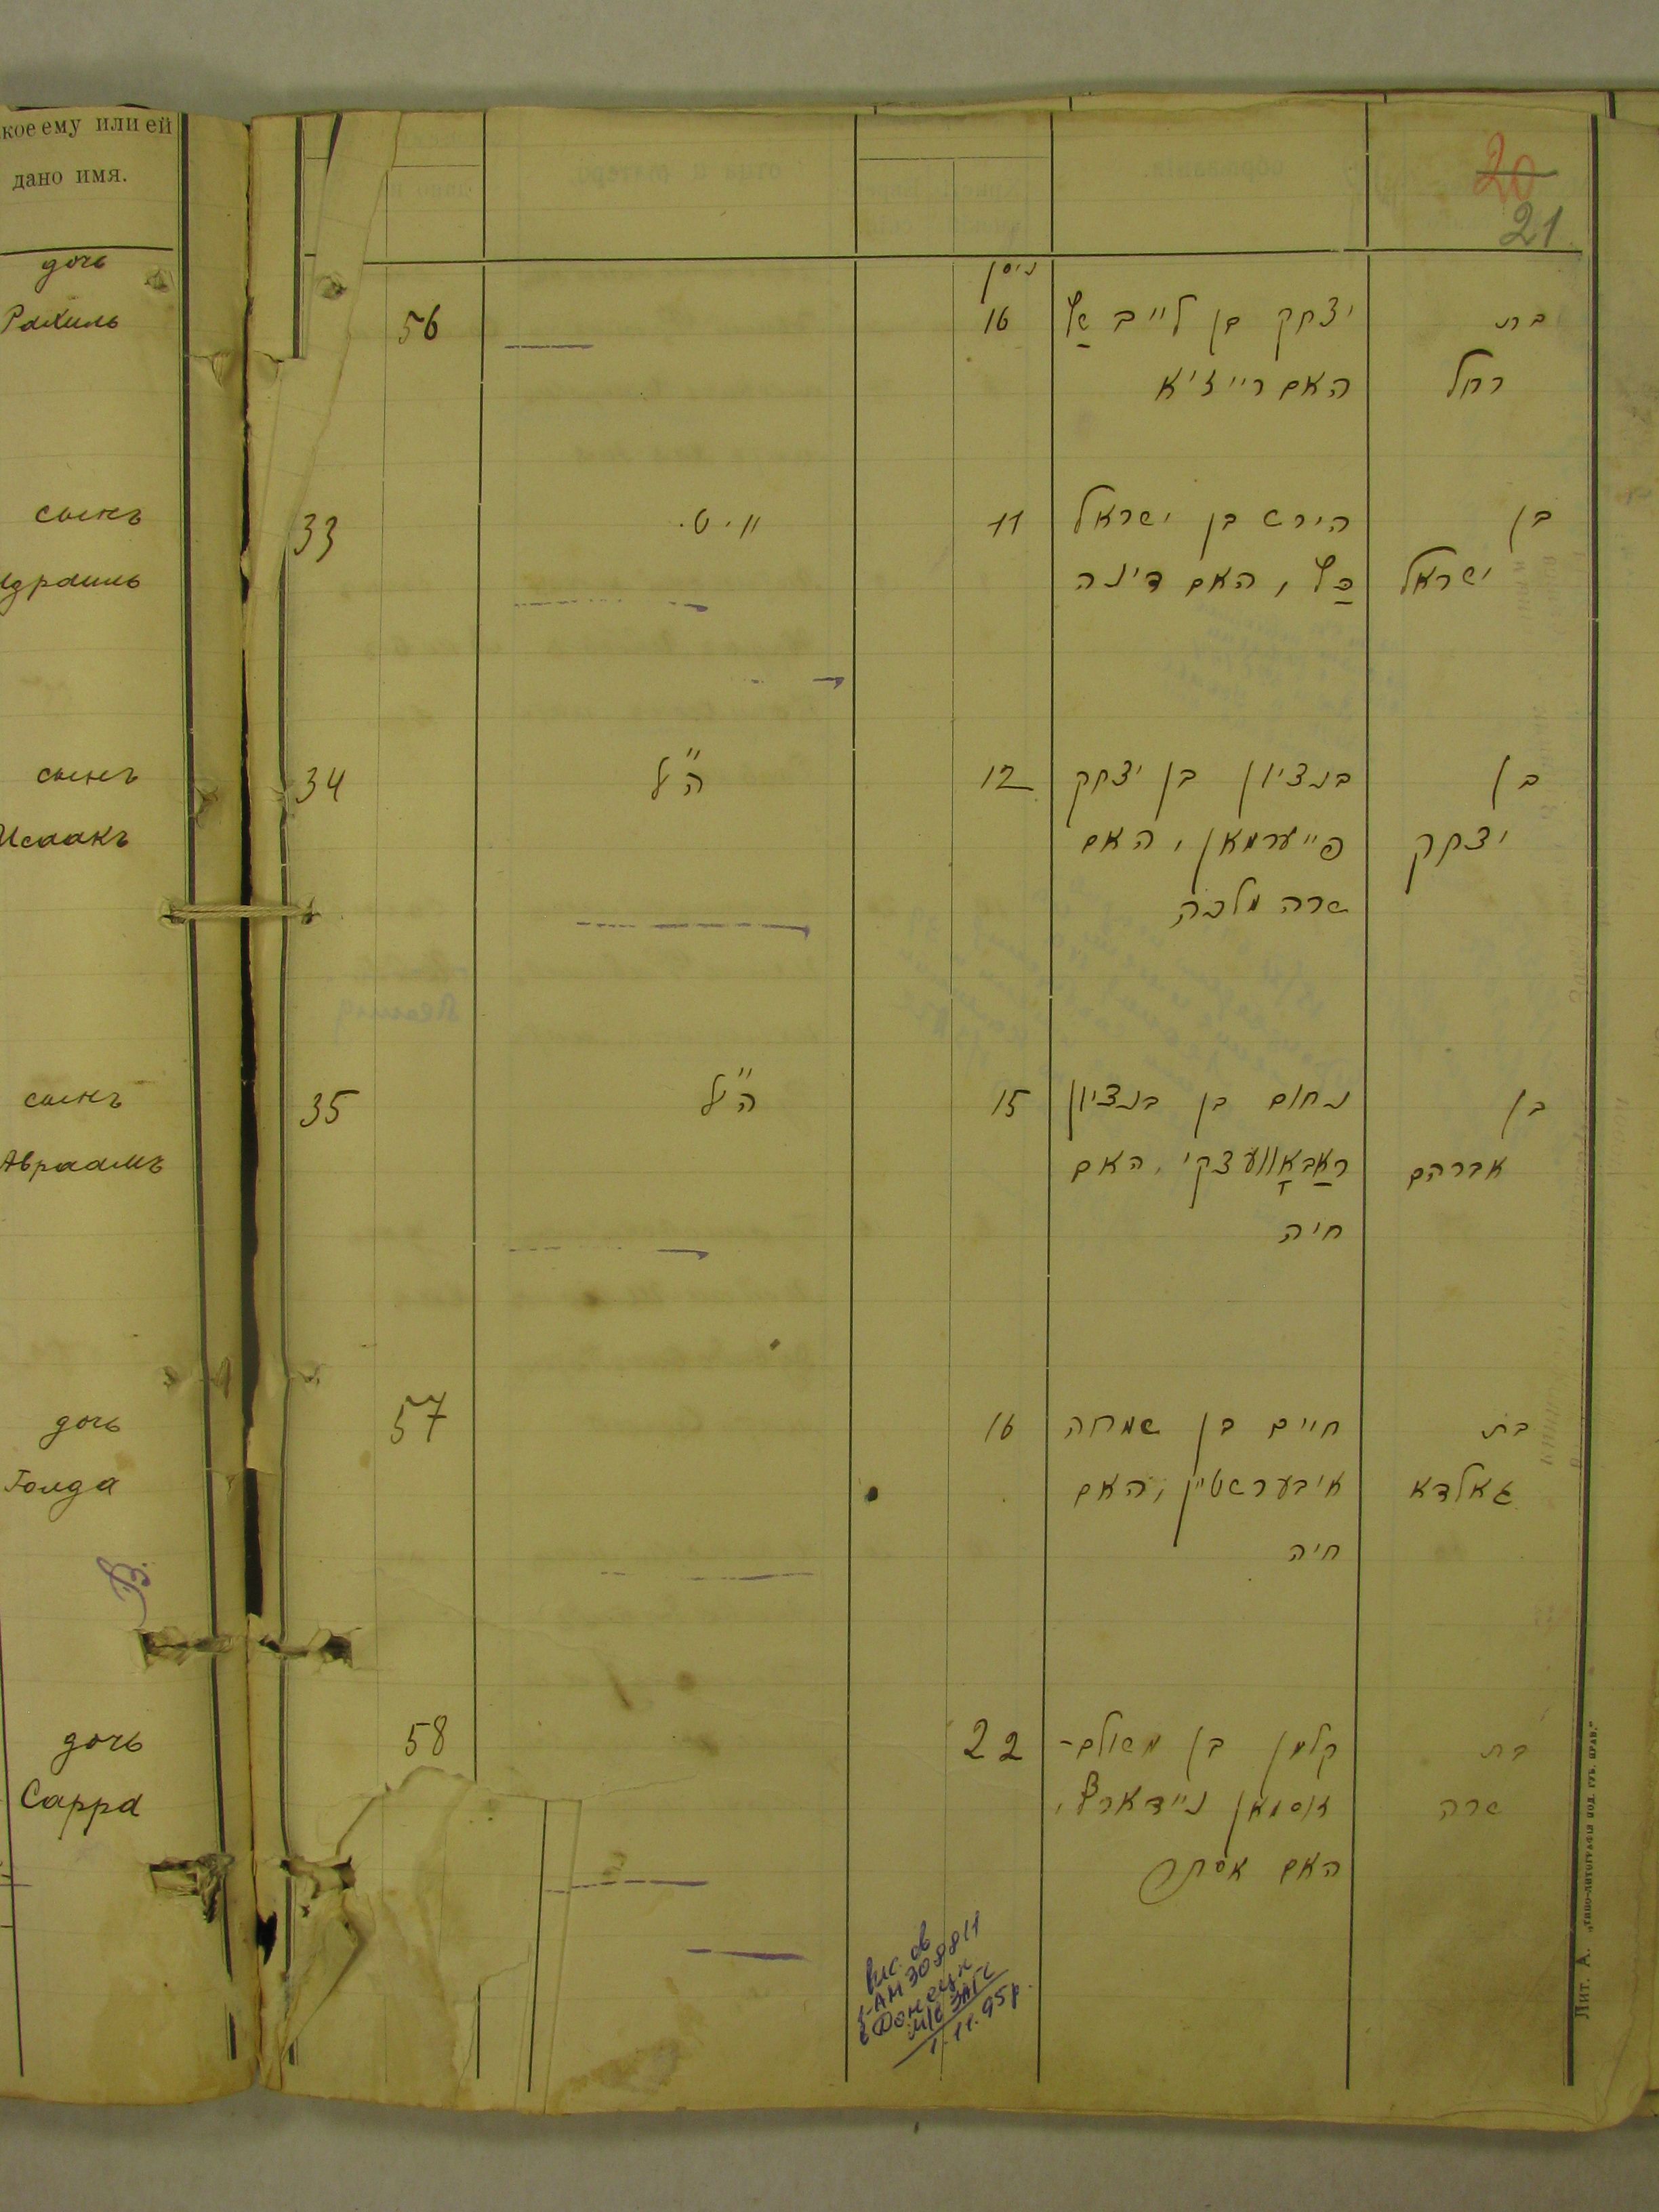 кое ему или ей
дано имя.
20
21
дочь
Рахиль
56
ניסן
16
יצחק בן לייב
האם רייזיא
בת
רחל
сынъ
Израиль
33
11
הירש בן ישראל
כַּץ, האם דינה
בן
ישראל
сынъ
Исаакъ
34
הנ״ל
12
בנציון בן יצחק
פייערמאן, האם
שרה מלכה
בן
יצחק
сынъ
Авраамъ
35
הנ״ל
15
נחום בן בנציון
ראַבאָוועצקי, האם
חיה
בן
אברהם
дочь
Голда
57
16
חיים בן שמחה
איבערשטיין, האם
חיה
בת
גאלדא
В.
дочь
Сарра
58
22
קלמן בן משולם-
זוסמאן
האם אסתר
בת
שרה
I-АН 308811
Донецк
ЗАГС
1.11.95р.
Лит. А. „Типо-литографія под. губ. прав."